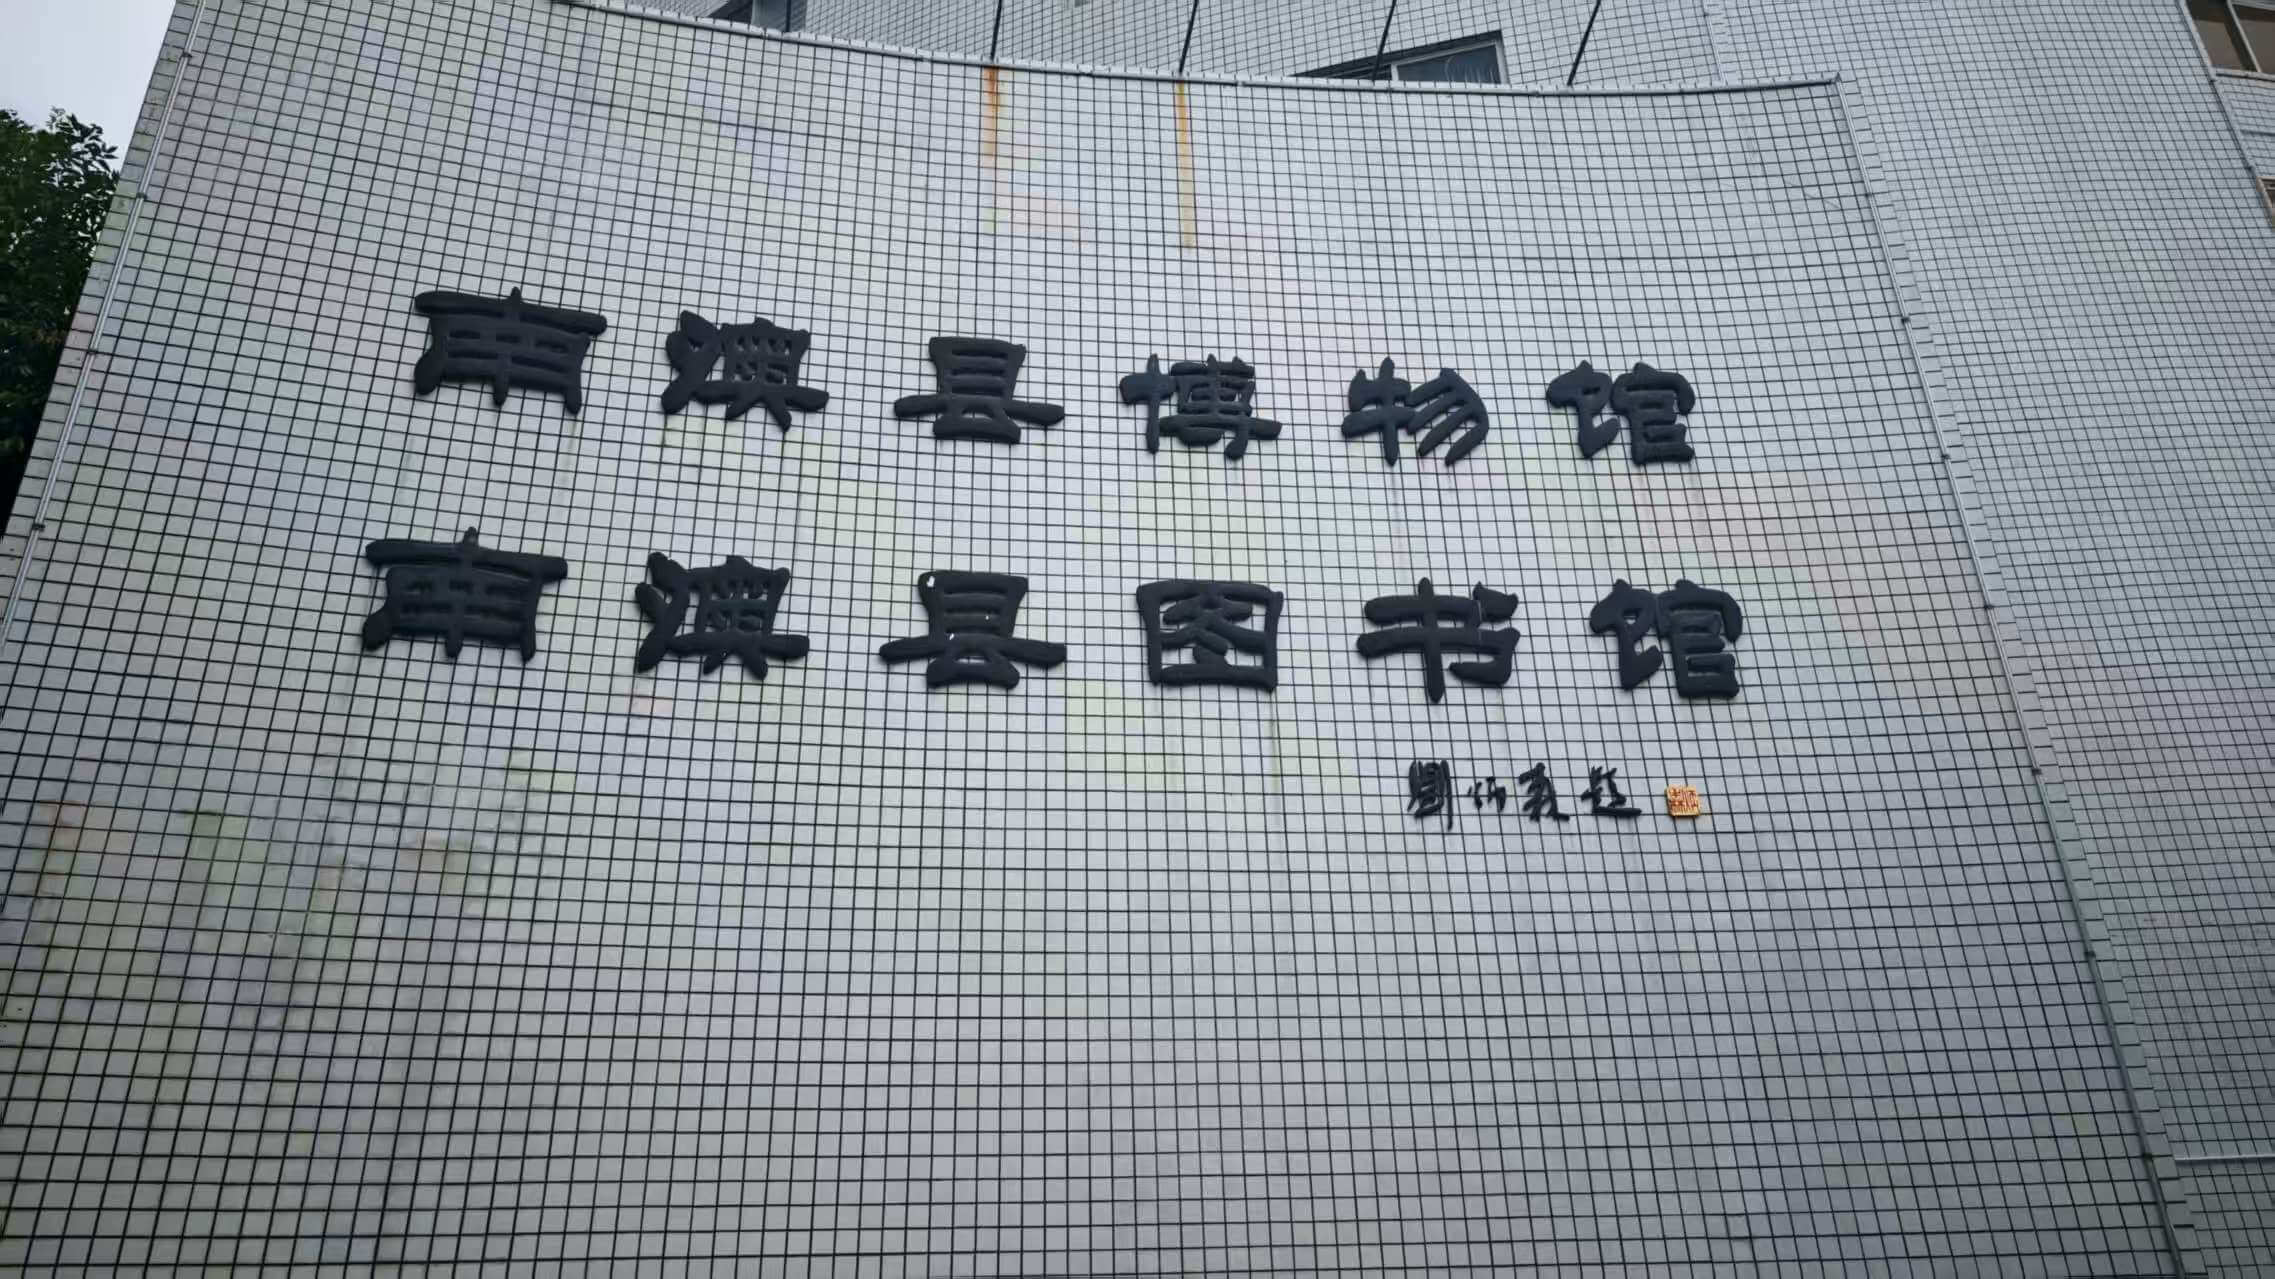 南澳县博物馆
南澳县图书馆
劉炳森題